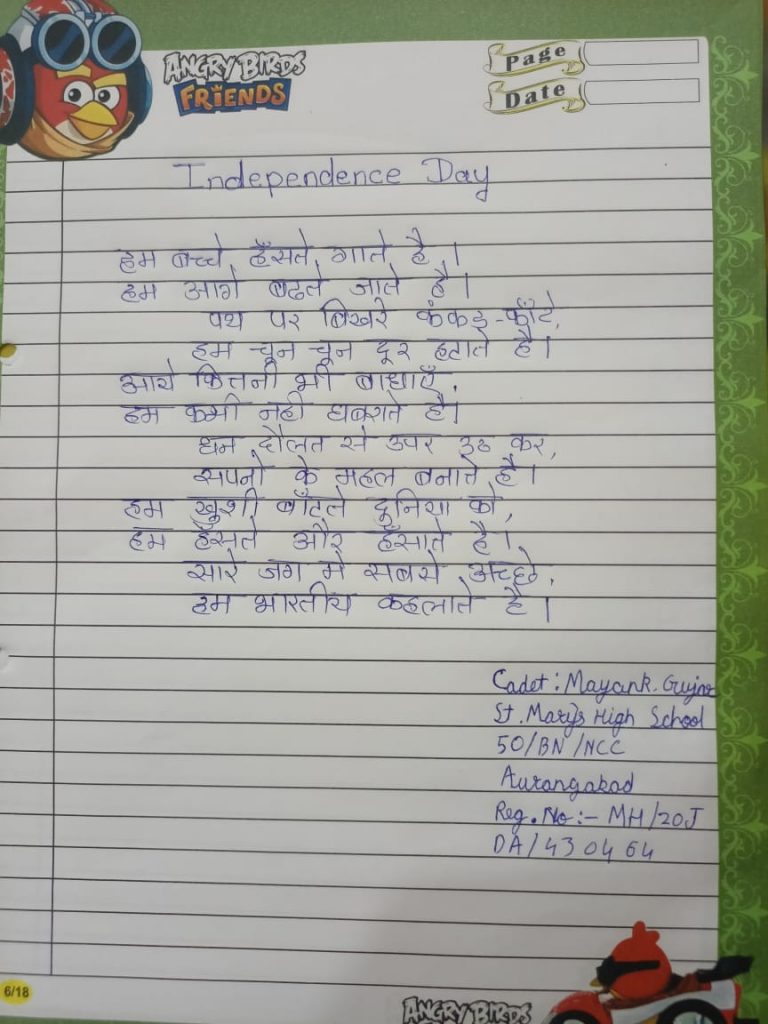 ANGRY BIRDS
FRIENDS
Page
Date
Independence Day
हम बच्चे, हँसते, गाते है।
हम आगे बढते जाते है।
पथ पर बिखरे कंकड़-काँटे,
हम चून चून दूर हटाते है।
आये कितनी भी बाधाएँ,
हम कभी नही घबराते है।
धन दौलत से उपर उठ कर,
सपनो के महल बनाते है।
हम खुशी बाँटते दुनिया को,
हम हँसते और हँसाते है।
सारे जग मे सबसे अच्छे,
हम भारतीय कहलाते है।
Cadet: Mayank. Gujar
St. Mary's High School
50/BN/NCC
Aurangabad
Reg. No:- MH/20J
DA/430464
6/18
ANGRY BIRDS